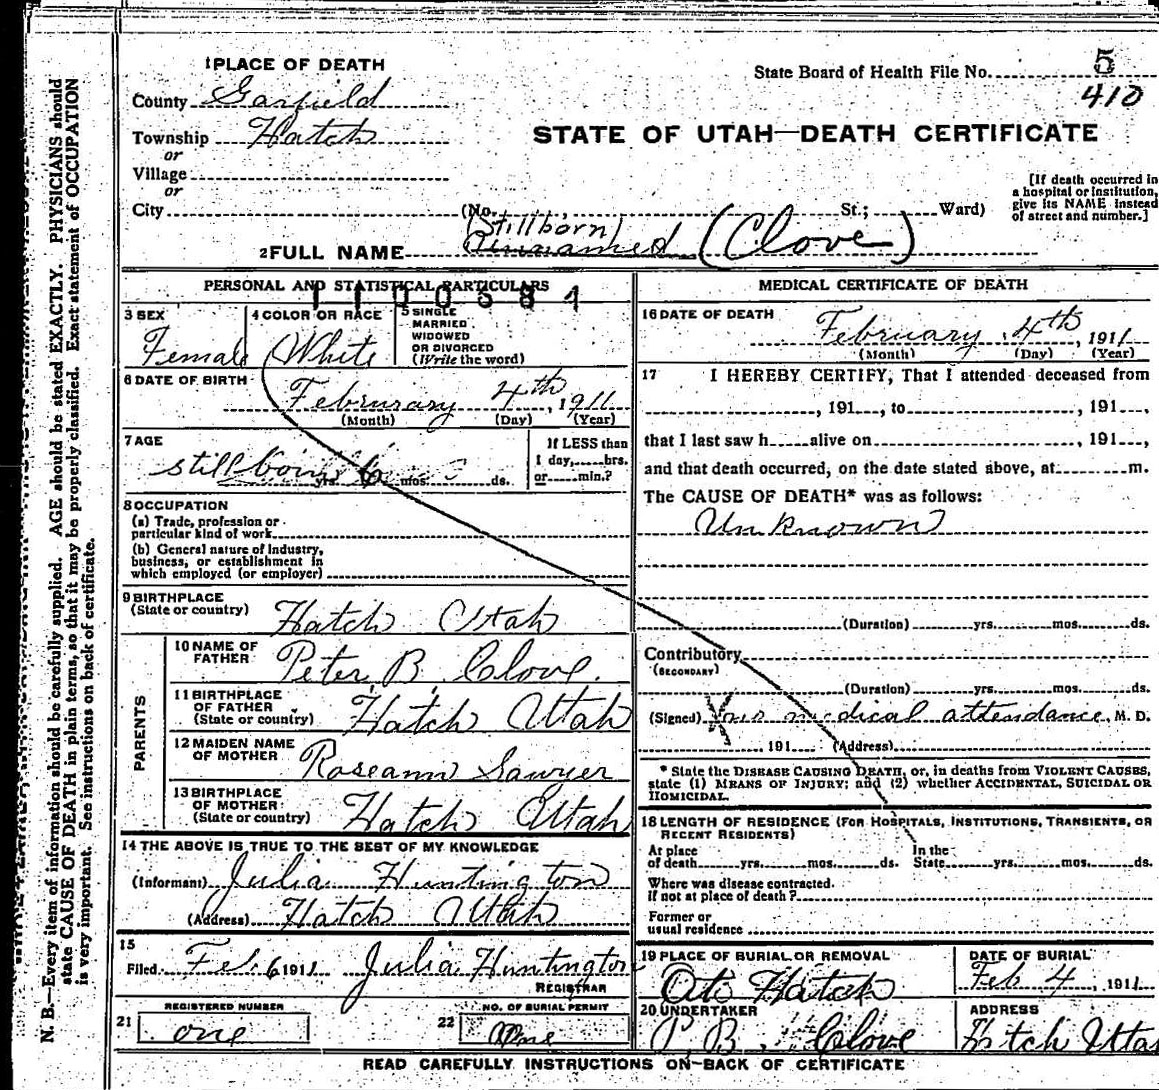 1 PLACE OF DEATH
State Board of Health File No. 5
410
County Garfield
Township Hatch
or
Village
or
City
STATE OF UTAH—DEATH CERTIFICATE
(No. St.; Ward)
[If death occurred in
a hospital or institution,
give its NAME instead
of street and number.]
(Stillborn)
2 FULL NAME Unnamed (Clove)
PERSONAL AND STATISTICAL PARTICULARS
3 SEX
Female
4 COLOR OR RACE
White
5 SINGLE
MARRIED
WIDOWED
OR DIVORCED
(Write the word)
6 DATE OF BIRTH
Februrary 4th, 1911
(Month) (Day) (Year)
7 AGE
stillborn yrs. mos. ds.
If LESS than
1 day, hrs.
or min.?
8 OCCUPATION
(a) Trade, profession or
particular kind of work
(b) General nature of industry,
business, or establishment in
which employed (or employer)
9 BIRTHPLACE
(State or country) Hatch Utah
PARENTS
10 NAME OF
FATHER Peter B. Clove.
11 BIRTHPLACE
OF FATHER
(State or country) Hatch Utah
12 MAIDEN NAME
OF MOTHER Roseann Sawyer
13 BIRTHPLACE
OF MOTHER
(State or country) Hatch Utah
14 THE ABOVE IS TRUE TO THE BEST OF MY KNOWLEDGE
(Informant) Julia Huntington
(Address) Hatch Utah
15
Filed Feb 6 1911 Julia Huntington
REGISTRAR
REGISTERED NUMBER
21 one
NO. OF BURIAL PERMIT
22 One
MEDICAL CERTIFICATE OF DEATH
16 DATE OF DEATH
February 4th, 1911
(Month) (Day) (Year)
17 I HEREBY CERTIFY, That I attended deceased from
, 191 , to , 191 ,
that I last saw h alive on , 191 ,
and that death occurred, on the date stated above, at m.
The CAUSE OF DEATH* was as follows:
Unknown
(Duration) yrs. mos. ds.
Contributory
(SECONDARY)
(Duration) yrs. mos. ds.
(Signed) medical attendance, M. D.
191 (Address)
* State the DISEASE CAUSING DEATH, or, in deaths from VIOLENT CAUSES,
state (1) MEANS OF INJURY; and (2) whether ACCIDENTAL, SUICIDAL OR
HOMICIDAL.
18 LENGTH OF RESIDENCE (FOR HOSPITALS, INSTITUTIONS, TRANSIENTS, OR
RECENT RESIDENTS)
At place
of death yrs. mos. ds.
In the
State yrs. mos. ds.
Where was disease contracted.
If not at place of death?
Former or
usual residence
19 PLACE OF BURIAL OR REMOVAL
Hatch
DATE OF BURIAL
Feb 4, 1911
20 UNDERTAKER
P B. Clove
ADDRESS
Hatch Utah
READ CAREFULLY INSTRUCTIONS ON BACK OF CERTIFICATE
N. B.—Every item of information should be carefully supplied. AGE should be stated EXACTLY. PHYSICIANS should
state CAUSE OF DEATH in plain terms, so that it may be properly classified. Exact statement of OCCUPATION
is very important. See instructions on back of certificate.